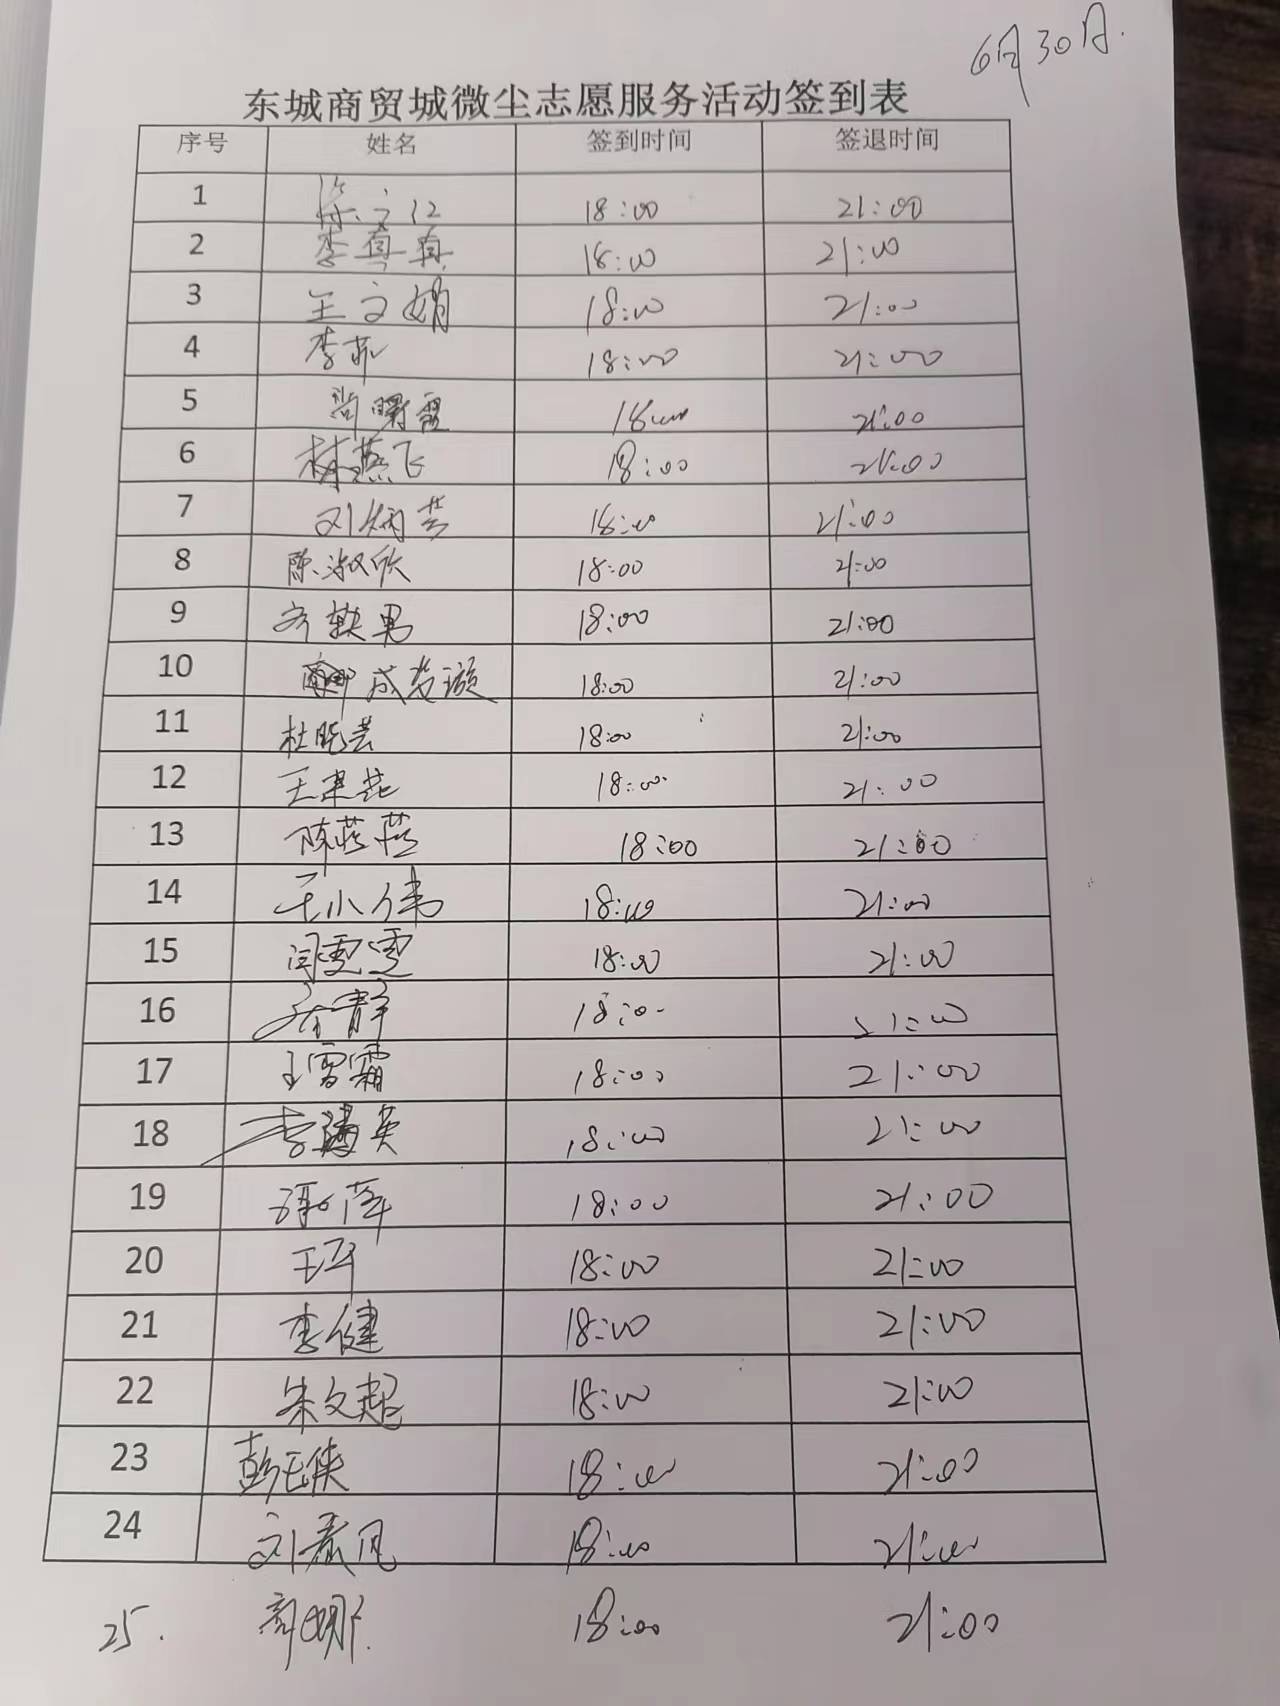 6月30日.
东城商贸城微尘志愿服务活动签到表
序号 姓名 签到时间 签退时间
1 18:00 21:00
2 李真真 18:00 21:00
3 王文娟 18:00 21:00
4 李菲 18:00 21:00
5 尚曙霞 18:00 21:00
6 林燕飞 18:00 21:00
7 刘炳芸 18:00 21:00
8 陈淑欣 18:00 21:00
9 齐轶男 18:00 21:00
10 成梦璇 18:00 21:00
11 杜晓芸 18:00 21:00
12 王建花 18:00 21:00
13 陈蓓蓓 18:00 21:00
14 王小伟 18:00 21:00
15 闫雯雯 18:00 21:00
16 乔静 18:00 21:00
17 王雪霜 18:00 21:00
18 李 英 18:00 21:00
19 萍 18:00 21:00
20 王平 18:00 21:00
21 李健 18:00 21:00
22 朱文超 18:00 21:00
23 彭玉侠 18:00 21:00
24 刘春凤 18:00 21:00
25. 郭娜 18:00 21:00